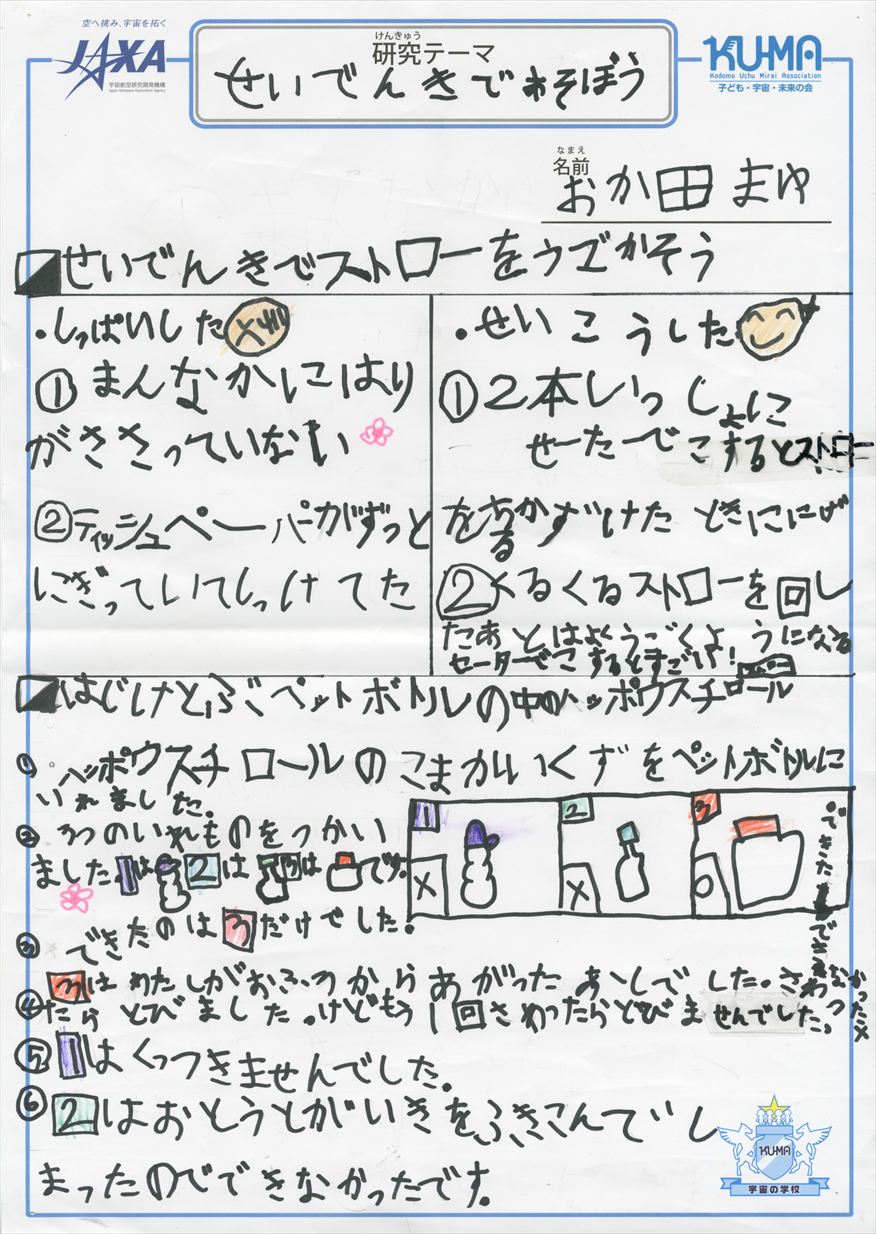 空へ挑み、宇宙を拓く
JAXA
宇宙航空研究開発機構
Japan Aerospace Exploration Agency
けんきゅう
研究テーマ
せいでんきであそぼう
KU-MA
Kodomo Uchu Mirai Association
子ども・宇宙・未来の会
なまえ
名前
おか田まゆ
せいでんきでストローをうごかそう
・しっぱいした
①まんなかにはり
がささっていない
②ティッシュペーパーがずっと
にぎっていてしっけてた
・せいこうした
①2本いっしょに
せーたーでこするとストロー
をあるかずけたときににげ
②くるくるストローを回し
たあとはよくうごくようになる
セーターでこするとすごい!
はじけとぶペットボトルの中のハッポウスチロール
①ハッポウスチロールのこまかいくずをペットボトルに
いれました。
②3つのいれものをつかい
ました1は2は3はです。
1
2
3
×
×
○
③できたのは3だけでした。
④3はわたしがおふろからあがったあしでした。さわっ
たらとびました。けどもう1回さわったらとびませんでした。
○できた
×できなかった
⑤1はくっつきませんでした。
⑥2はおとうとがいきをふきこんでし
まったのでできなかったです。
KU-MA
宇宙の学校